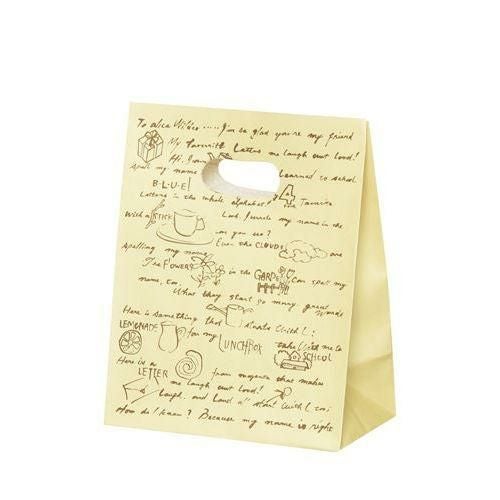 To Alice Wilder ..... I'm so glad you're my friend
My Favorite Letters me laugh out loud!
Hi, I'm Learned to school
Spell my name
BLUE! 4 Favorite
Letters in the whole alphabet!
With a STICK Look, I wrote my name in the
or you see?
Even the CLOUDS are
spelling my name
The FLOWERS in the GARDEN Can spell my
name, too. What they start so many great words
Here is something that starts With L:
LEMONADE for my LUNCHBOX take With me to SCHOOL
Here is a LETTER from magenta that makes
me laugh out loud!
Laugh, and Loud all start With L, too!
How do I know? Because my name is right